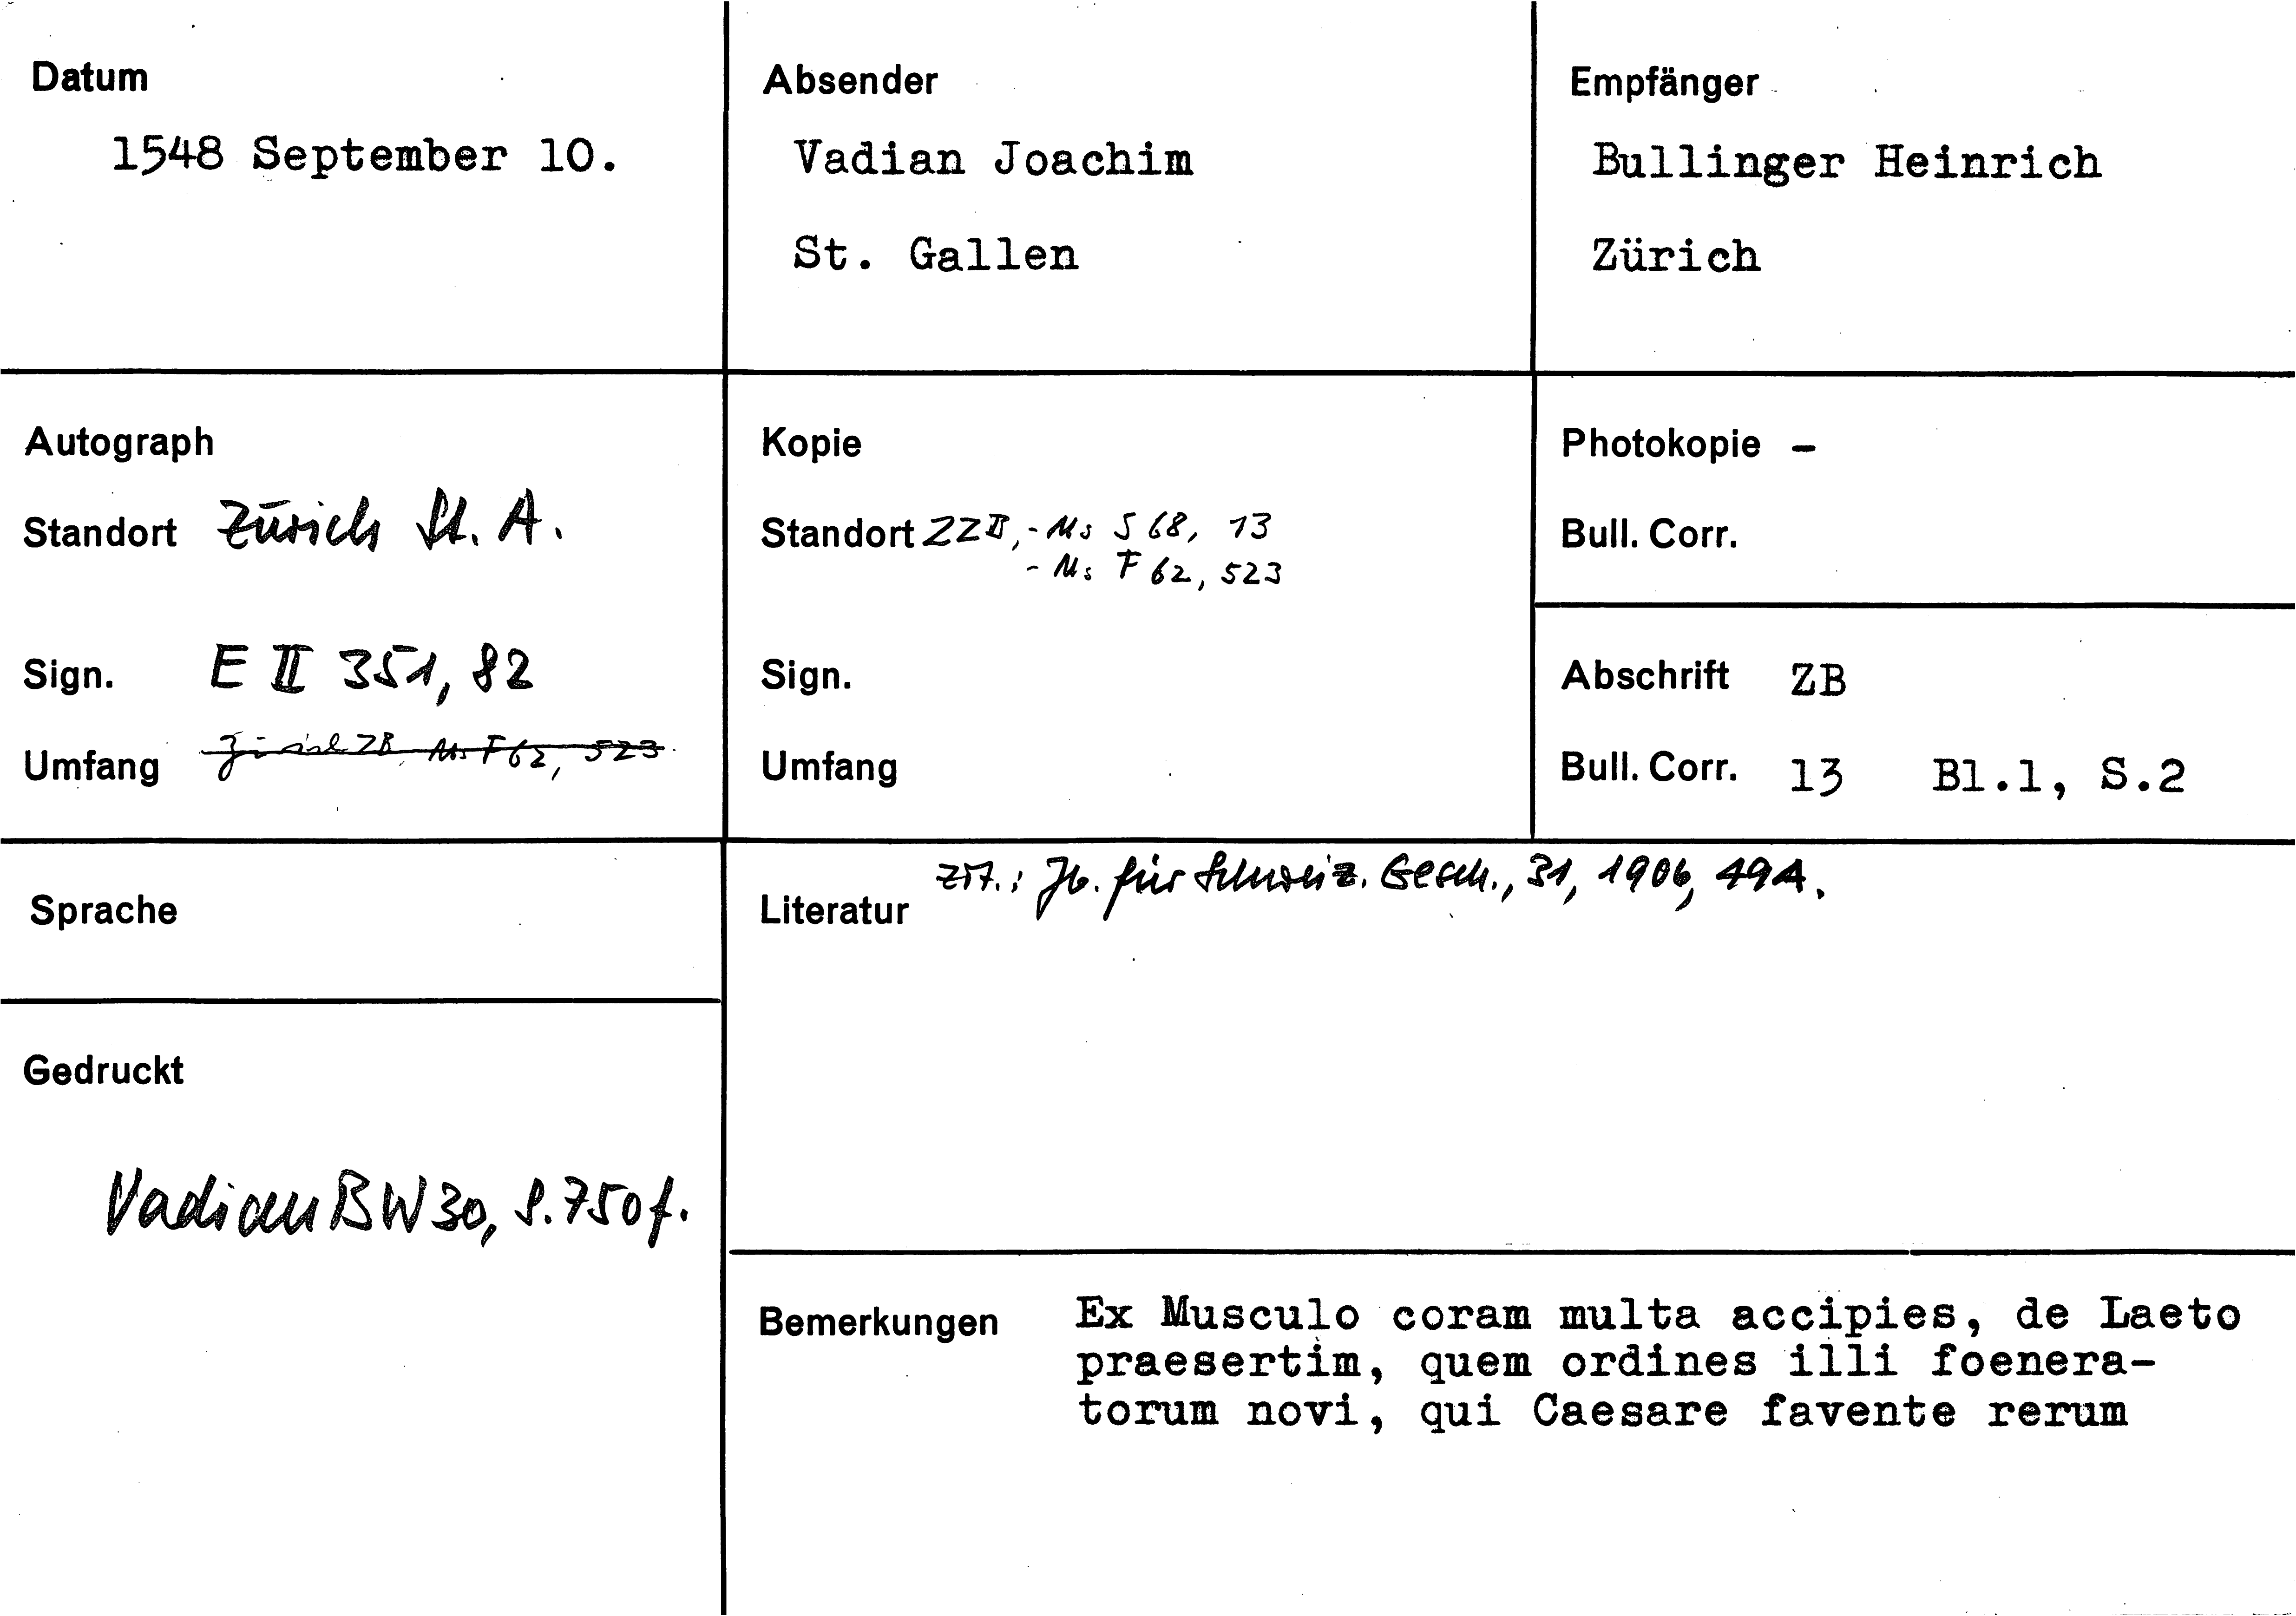 Datum
1548 September 10.
Absender
Vadian Joachim
St. Gallen
Empfänger
Bullinger Heinrich
Zürich
Autograph
Standort Zürich St. A.
Sign. E II 351, 82
Umfang Zürich ZB, Ms F 62, 523
Kopie
Standort ZZB, - Ms S 68, 13
- Ms F 62, 523
Sign.
Umfang
Photokopie -
Bull. Corr.
Abschrift ZB
Bull. Corr. 13 Bl.1, S.2
Sprache
Gedruckt
Vadian BW 30, S. 750f.
Literatur zit.: Jb. für Schweiz. Gesch., 31, 1906, 49A.
Bemerkungen Ex Musculo coram multa accipies, de Laeto
praesertim, quem ordines illi foenera-
torum novi, qui Caesare favente rerum